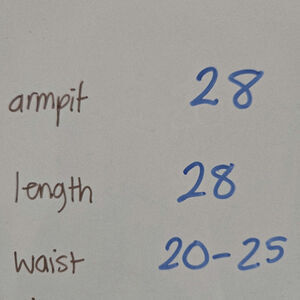 armpit 28
length 28
waist 20-25